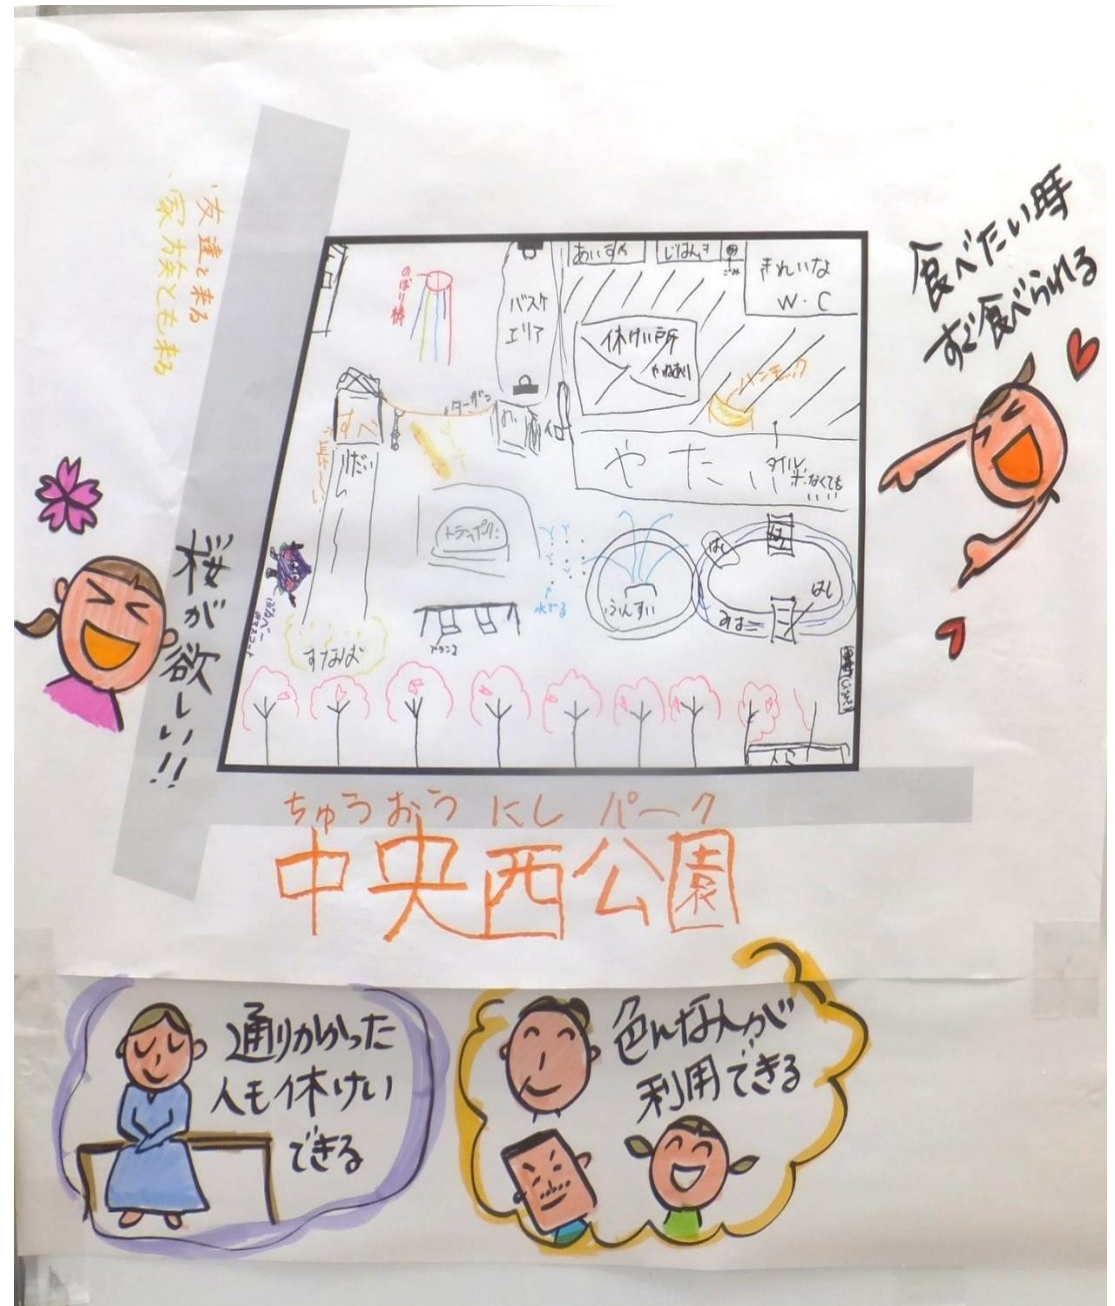 ・友達と来る
・家族とも来る
食べたい時
すぐ食べられる
桜が欲しい!!
のぼり棒
バスケ
エリア
あいす
じはんき
ごみ
きれいな
W.C
休けい所
やねあり
ハンモック
ターザン
すべ
りだい
やたい
タイル
じゃなくても
いい
トランポリン
水でる
ふんすい
はし
はし
はし
ブランコ
すなば
ちゅうおう にし パーク
中央西公園
通りかかった
人も休けい
できる
色んな人が
利用できる